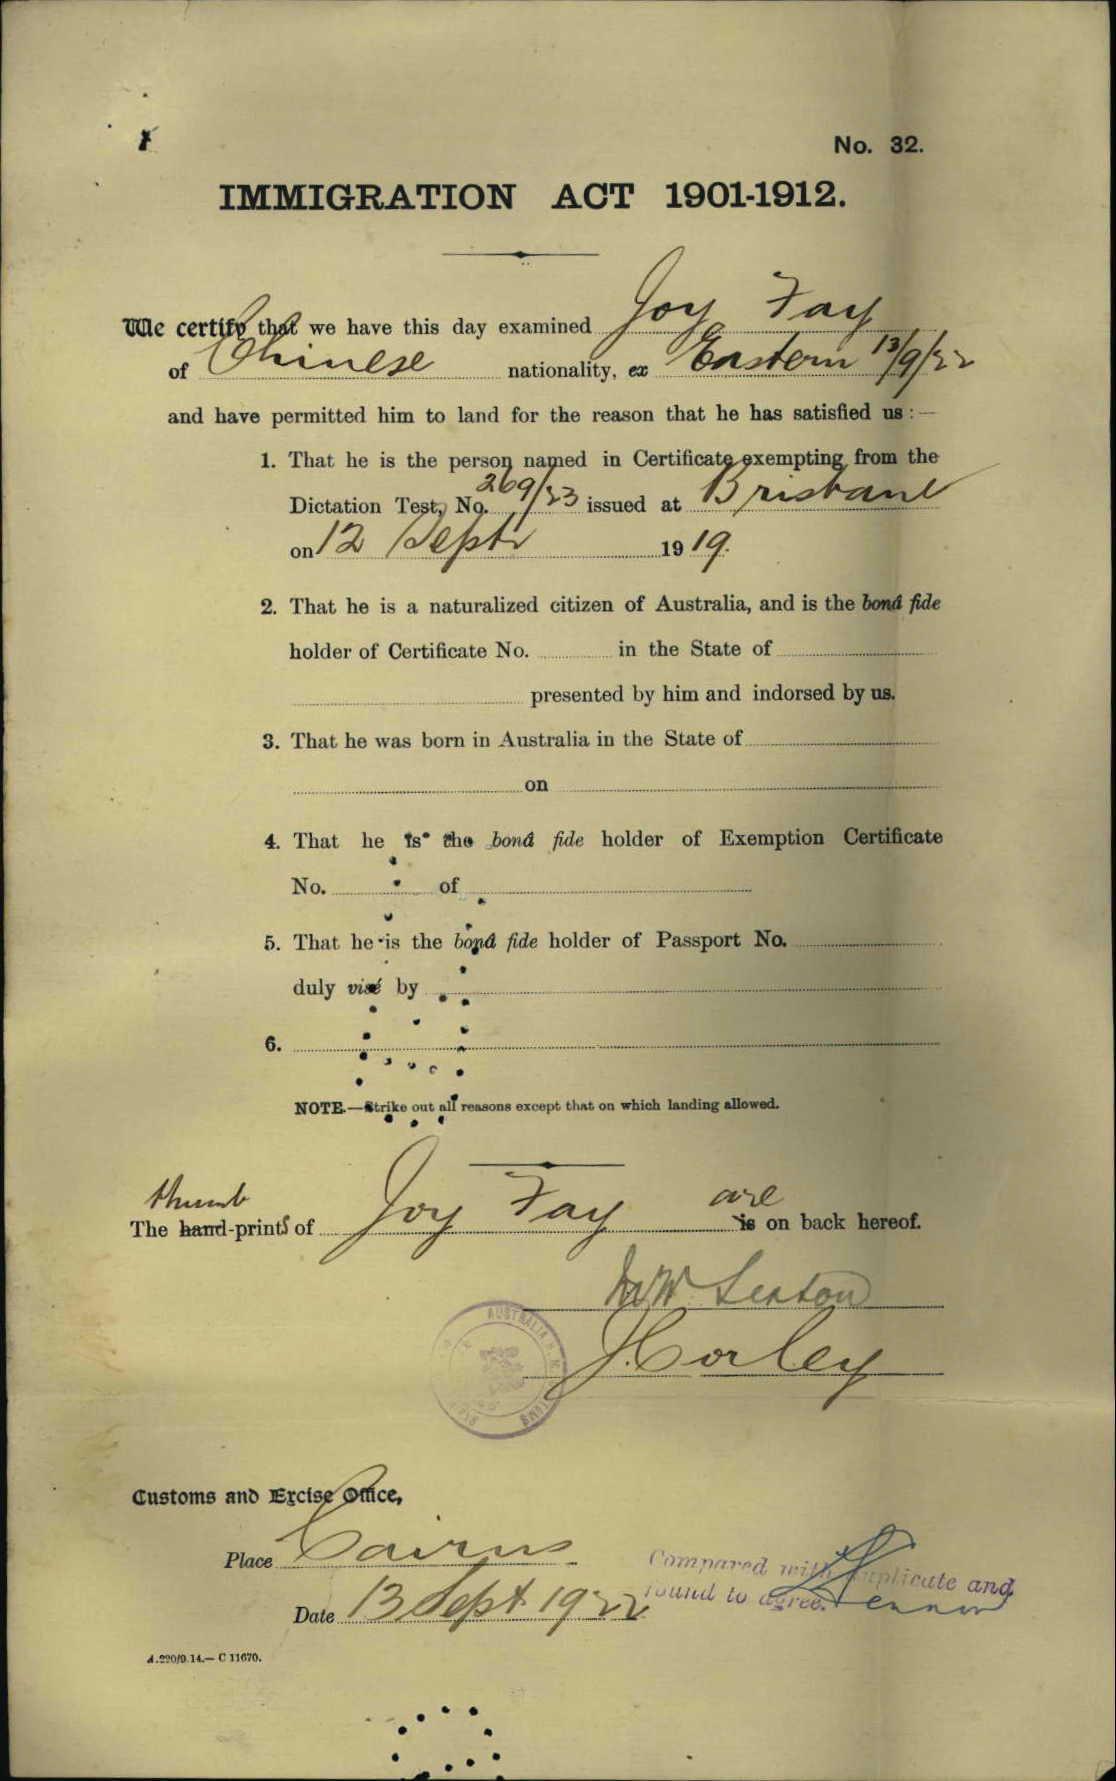 No. 32.
IMMIGRATION ACT 1901-1912.
We certify that we have this day examined Joy Fay
of Chinese nationality, ex Eastern 13/9/22
and have permitted him to land for the reason that he has satisfied us :—
1. That he is the person named in Certificate exempting from the
Dictation Test, No. 269/23 issued at Brisbane
on 12 Septr 1919.
2. That he is a naturalized citizen of Australia, and is the bonâ fide
holder of Certificate No. in the State of
presented by him and indorsed by us.
3. That he was born in Australia in the State of
on
4. That he is the bonâ fide holder of Exemption Certificate
No. of
5. That he is the bonâ fide holder of Passport No.
duly visé by
6.
NOTE.—Strike out all reasons except that on which landing allowed.
thumb are
The hand-prints of Joy Fay is on back hereof.
AUSTRALIA
J. Corley
Customs and Excise Office,
Place Cairns
Compared with duplicate and
found to agree.
Date 13 Sept 1922
A.220/9.14.— C 11670.